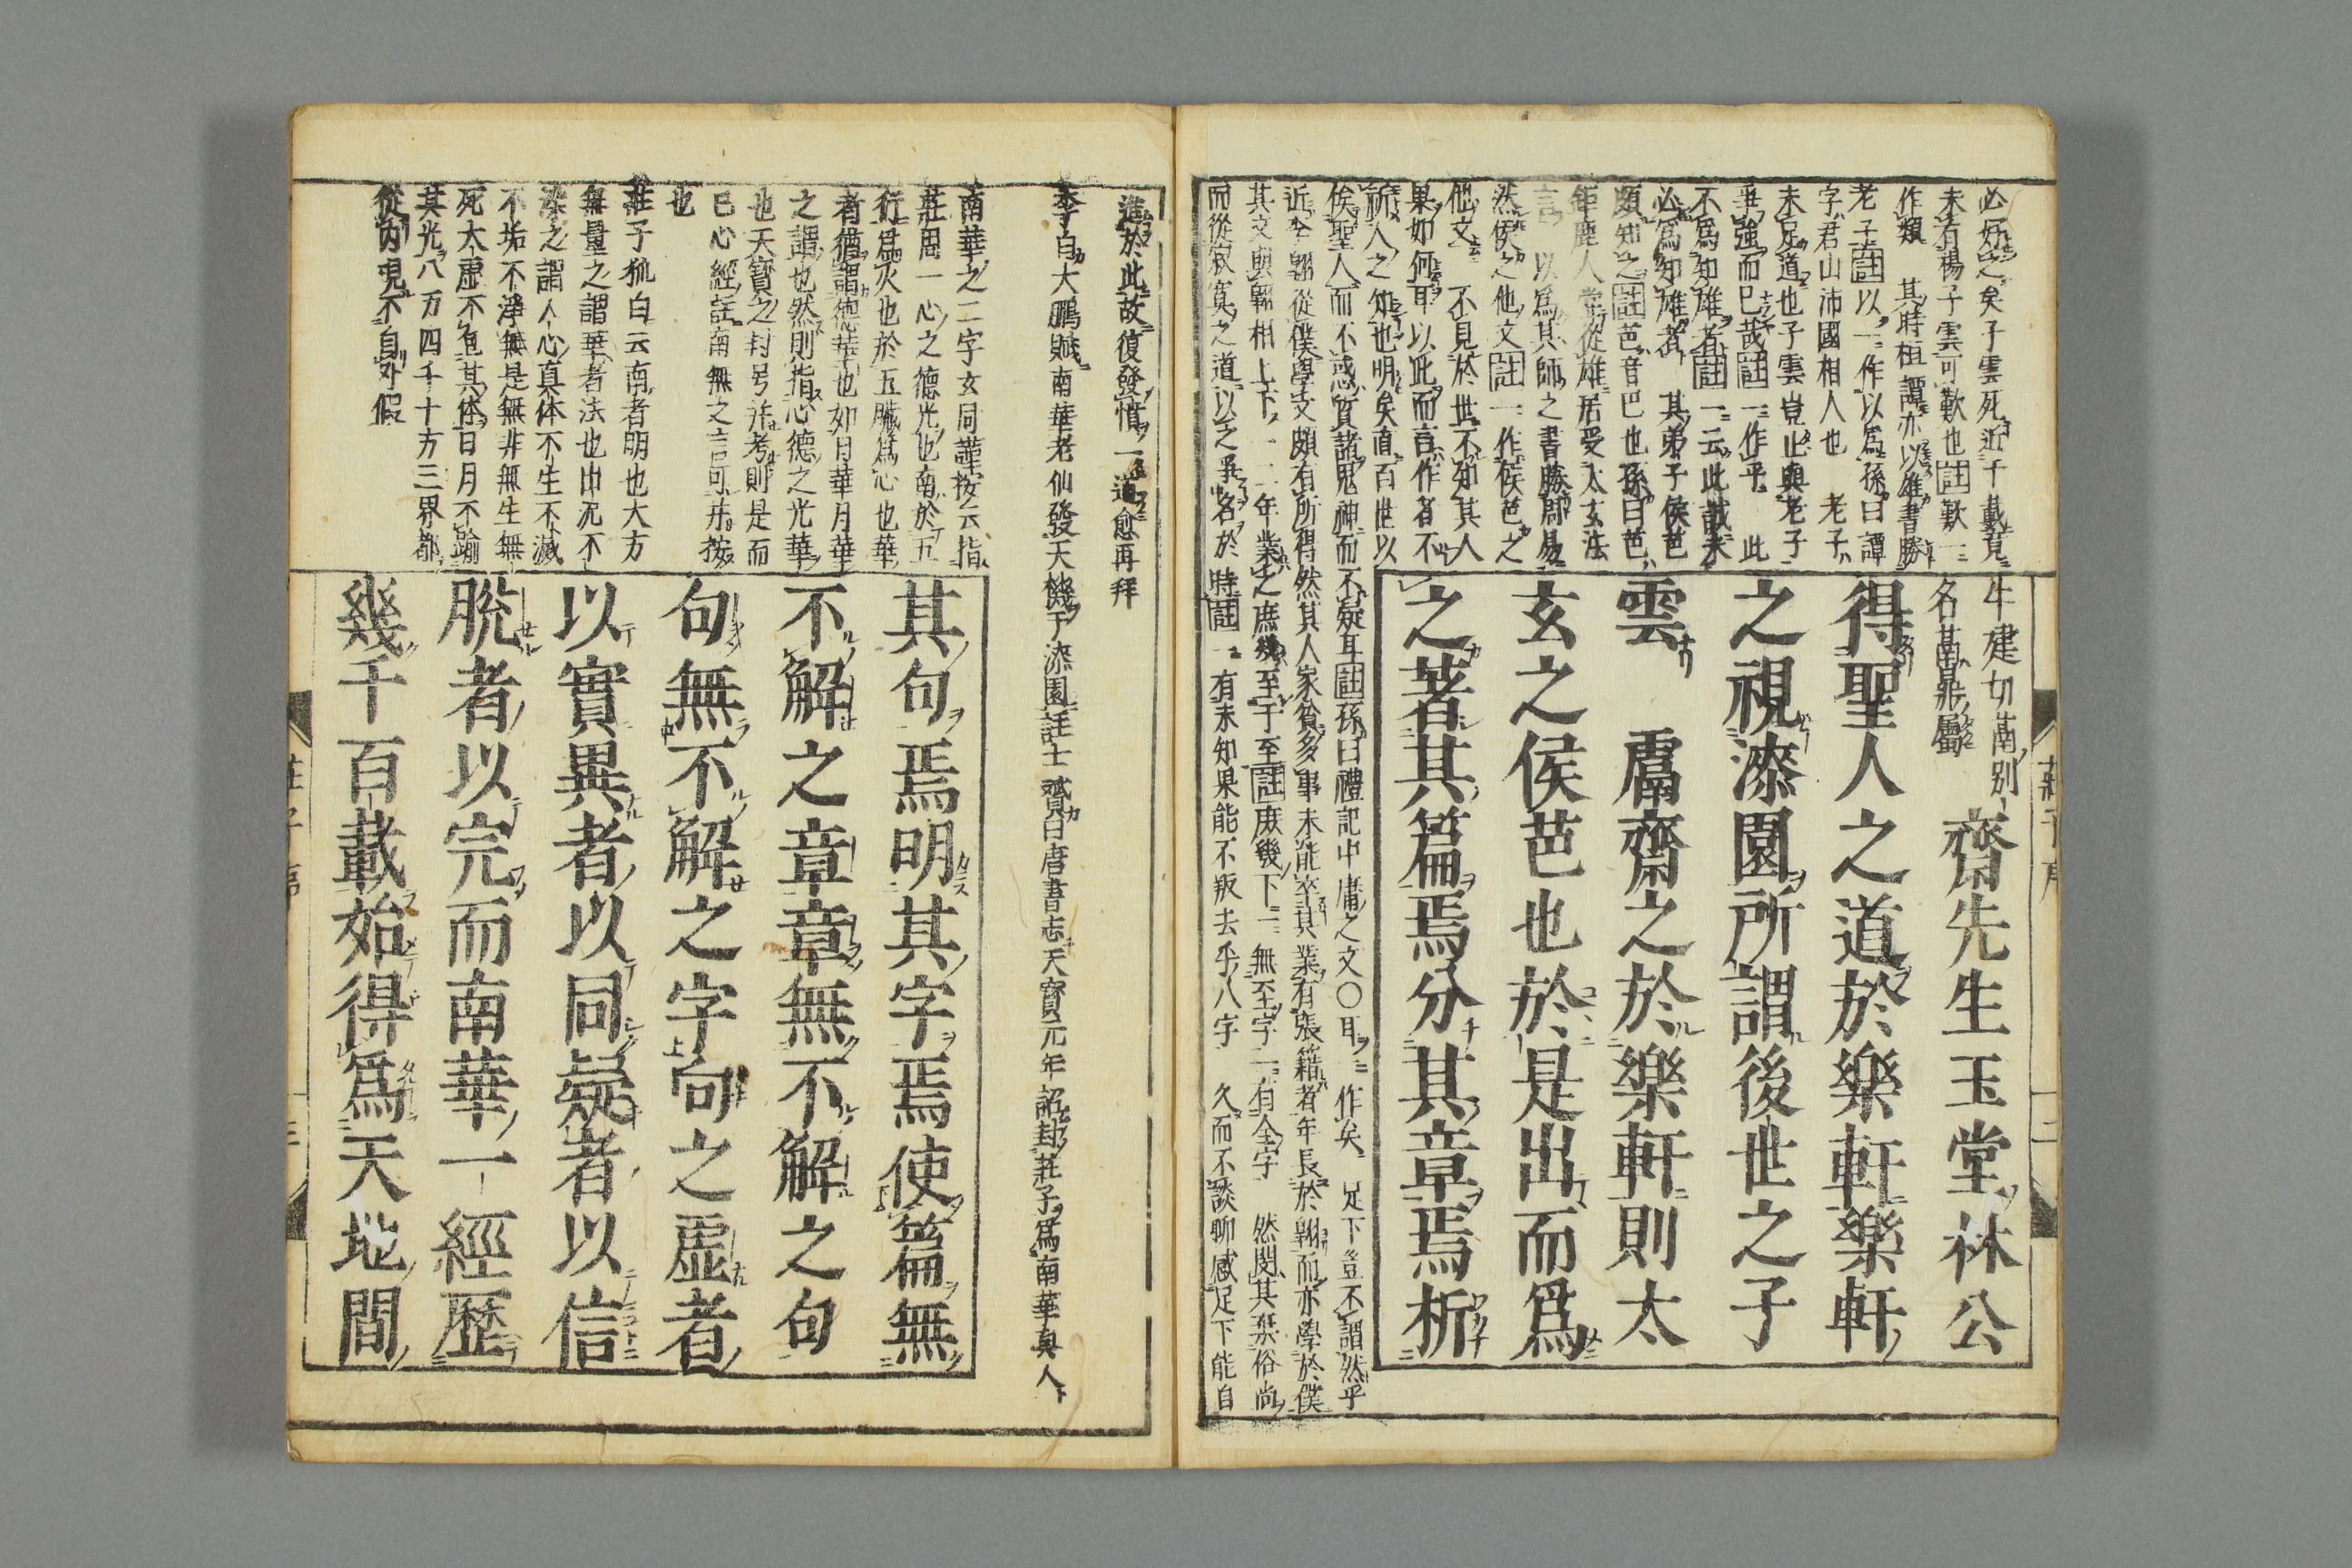 必好之矣子雲死近千載竟
未有楊子雲可歎也註歎一
作類 其時桓譚亦以雄書勝
老子註以一作以爲孫曰譚
字君山沛國相人也 老子
未足道也子雲豈止與老子
爭強而已哉註一作乎 此
不爲知雄者註一云此誠未
必爲知雄者 其弟子侯芭
頗知之註芭音巴也孫曰芭
鉅鹿人常從雄居受太玄法
言 以爲其師之書勝周易
然侯之他文註一作侯芭之
他文 不見於世不知其人
果如何耳以此而言作者不
祈人之知也明矣直百世以
俟聖人而不惑質諸鬼神而不疑耳註孫曰禮記中庸之文〇耳一作矣 足下豈不謂然乎
近李翺從僕學文頗有所得然其人家貧多事未能卒其業有張籍者年長於翺而亦學於僕
其文與翺相上下一二年業之庶幾至于至註庶幾下一無至字一有全字 然閔其棄俗尚
而從寂寞之道以之爭名於時註一有未知果能不叛去乎八字 久而不談聊感足下能自
牛建切鬳別
名鬳鼎屬
齋先生玉堂林公
得聖人之道於樂軒樂軒
之視漆園所謂後世之子
雲 鬳齋之於樂軒則太
玄之侯芭也於是出而爲
之著其篇焉分其章焉析
莊子序
二
進於此故復發憤一道愈再拜
李白大鵬賦南華老仙發天機于漆園註士贇曰唐書志天寶元年詔封莊子爲南華真人
南華之二字玄同謹按云指
莊周一心之德光也南於五
行爲火也於五臟爲心也華
者猶謂德華也如日華月華
之謂也然則指心德之光華
也天寶之封号並考則是而
已心經註南無之言可并按
也
莊子狐白云南者明也大方
無量之謂華者法也中沉不
染之謂人心真体不生不滅
不垢不淨無是無非無生無
死太虛不色其体日月不踰
其光八万四千十方三界都
從内現不自外假
其句焉明其字焉使篇無
不解之章章無不解之句
句無不解之字向之虛者
以實異者以同疑者以信
脫者以完而南華一經歷
幾千百載始得爲天地間
莊子序
三